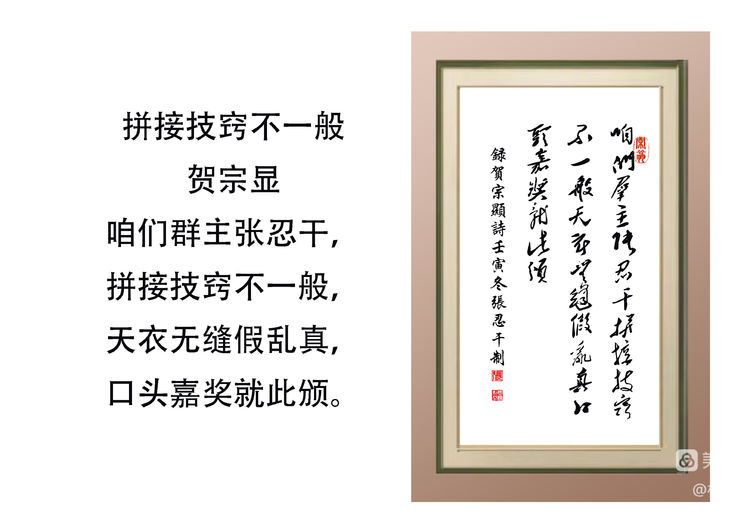 拼接技窍不一般
贺宗显
咱们群主张忍干，
拼接技窍不一般，
天衣无缝假乱真，
口头嘉奖就此颁。
咱們群主張忍干拼接技窍
不一般天衣无縫假亂真口
頭嘉奖就此頒
録賀宗顯詩壬寅冬張忍干制
美